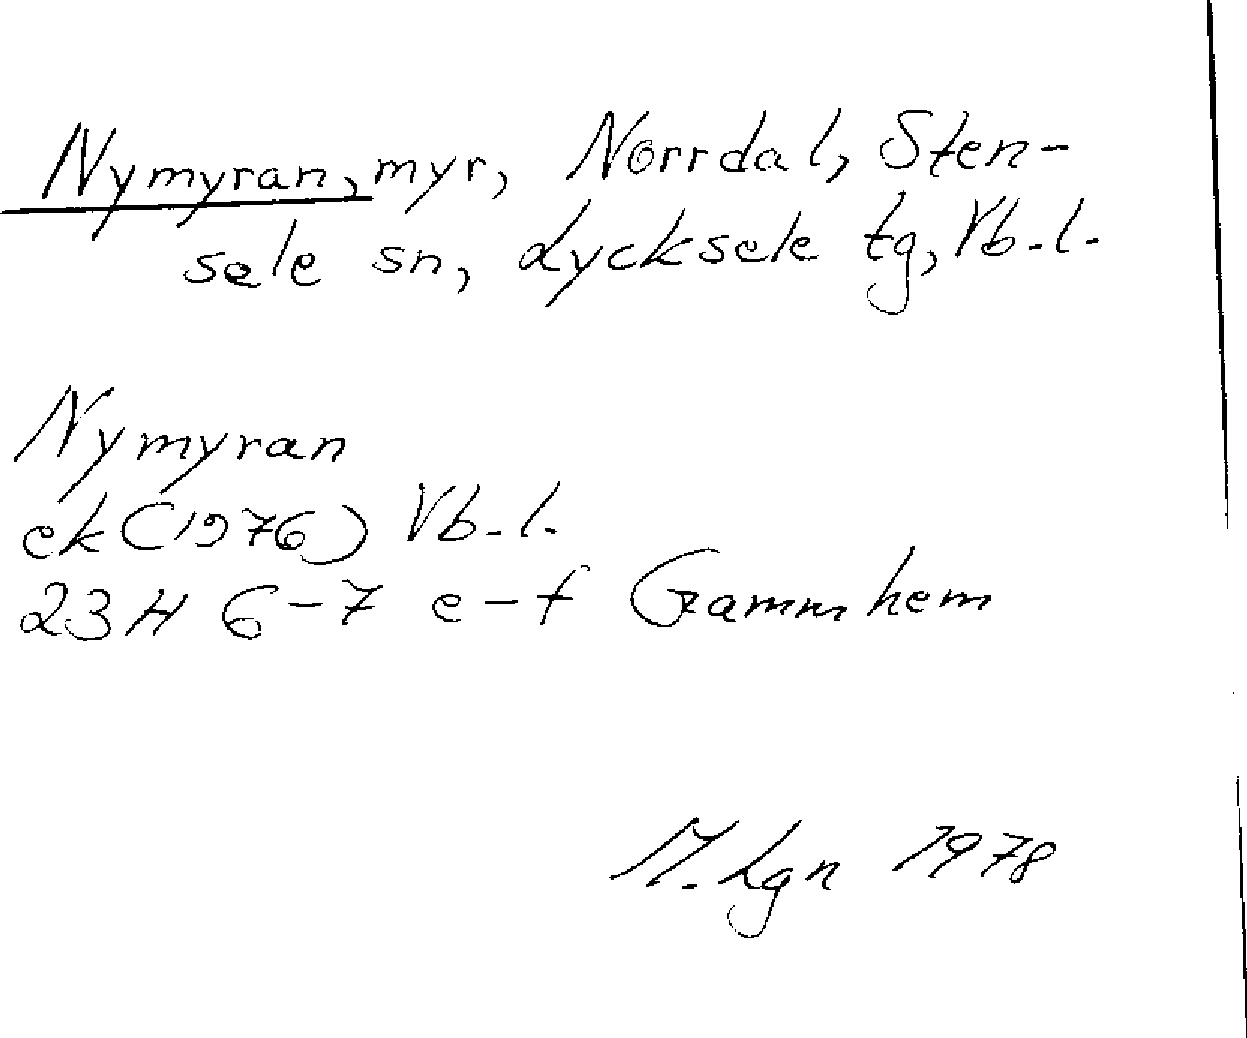 Nymyran, myr, Norrdal, Sten-
sele sn, Lycksele tg, Vb. l.
Nymyran
ek (1976) Vb. l.
23H 6-7 e-f Gammhem
M. Lgn 1978